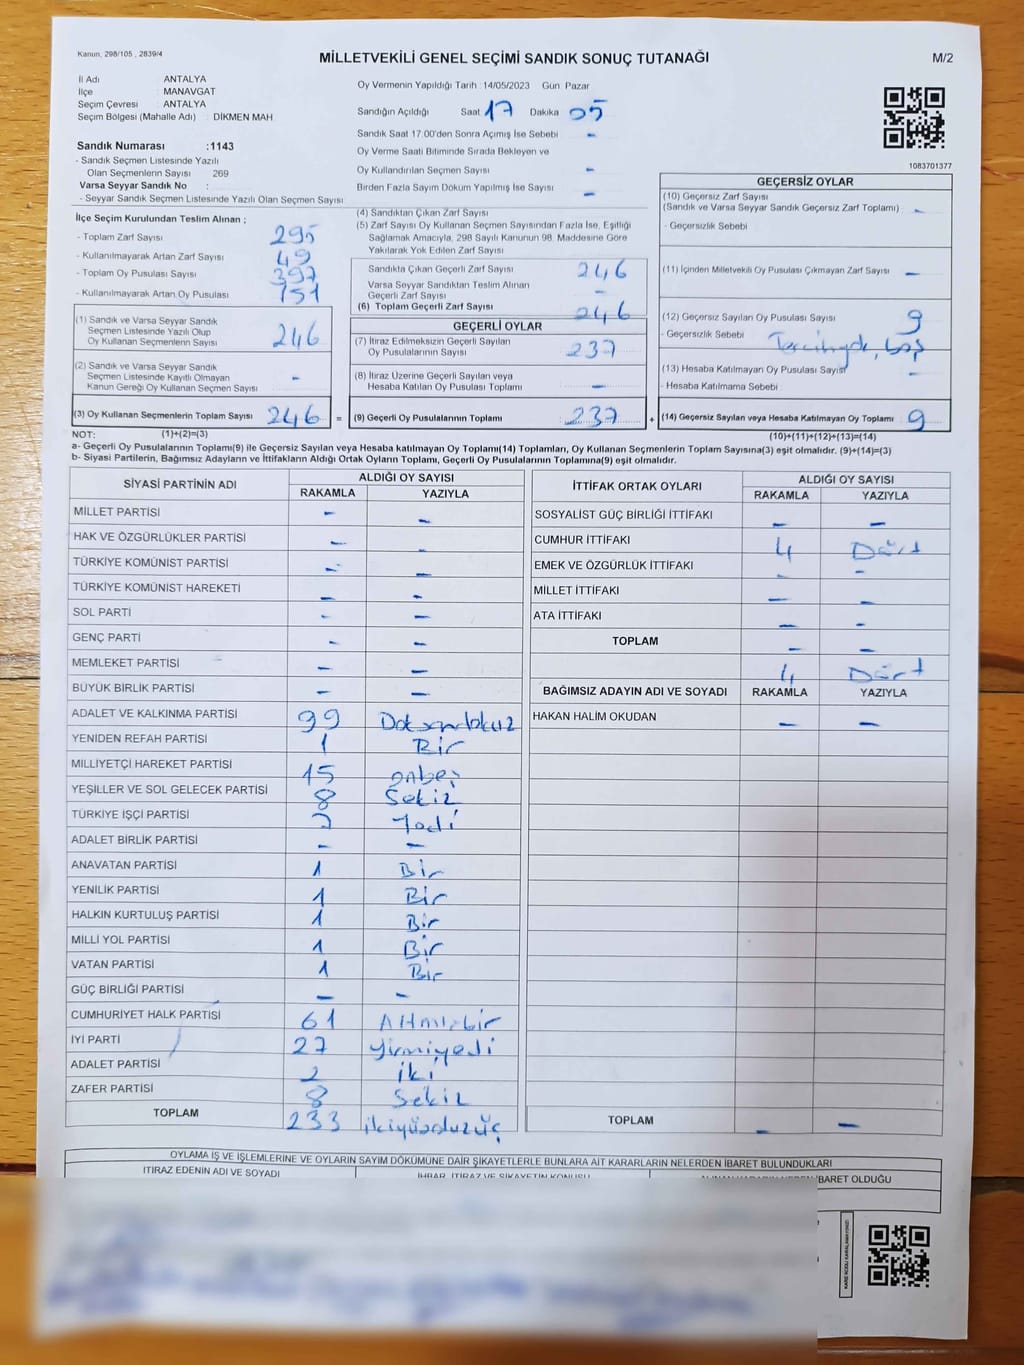 Kanun, 298/105 , 2839/4
MİLLETVEKİLİ GENEL SEÇİMİ SANDIK SONUÇ TUTANAĞI
M/2
İl Adı : ANTALYA
İlçe : MANAVGAT
Seçim Çevresi : ANTALYA
Seçim Bölgesi (Mahalle Adı) : DİKMEN MAH.
Sandık Numarası :1143
- Sandık Seçmen Listesinde Yazılı
Olan Seçmenlerin Sayısı : 269
Varsa Seyyar Sandık No :
- Seyyar Sandık Seçmen Listesinde Yazılı Olan Seçmen Sayısı :
Oy Vermenin Yapıldığı Tarih :14/05/2023 Gün Pazar
Sandığın Açıldığı Saat 17 Dakika 05
Sandık Saat 17:00'den Sonra Açımış İse Sebebi -
Oy Verme Saati Bitiminde Sırada Bekleyen ve
Oy Kullandırılan Seçmen Sayısı -
Birden Fazla Sayım Döküm Yapılmış İse Sayısı -
1083701377
İlçe Seçim Kurulundan Teslim Alınan ;
- Toplam Zarf Sayısı 295
- Kullanılmayarak Artan Zarf Sayısı 49
- Toplam Oy Pusulası Sayısı 397
- Kullanılmayarak Artan Oy Pusulası 151
(1) Sandık ve Varsa Seyyar Sandık
Seçmen Listesinde Yazılı Olup
Oy Kullanan Seçmenlerin Sayısı 246
(2) Sandık ve Varsa Seyyar Sandık
Seçmen Listesinde Kayıtlı Olmayan
Kanun Gereği Oy Kullanan Seçmen Sayısı -
(3) Oy Kullanan Seçmenlerin Toplam Sayısı 246 =
(1)+(2)=(3)
(4) Sandıktan Çıkan Zarf Sayısı
(5) Zarf Sayısı Oy Kullanan Seçmen Sayısından Fazla İse, Eşitliği
Sağlamak Amacıyla, 298 Sayılı Kanunun 98. Maddesine Göre
Yakılarak Yok Edilen Zarf Sayısı
Sandıkta Çıkan Geçerli Zarf Sayısı 246
Varsa Seyyar Sandıktan Teslim Alınan
Geçerli Zarf Sayısı -
(6) Toplam Geçerli Zarf Sayısı 246
GEÇERLİ OYLAR
(7) İtiraz Edilmeksizin Geçerli Sayılan
Oy Pusulalarının Sayısı 237
(8) İtiraz Üzerine Geçerli Sayılan veya
Hesaba Katılan Oy Pusulası Toplamı -
(9) Geçerli Oy Pusulalarının Toplamı 237 +
GEÇERSİZ OYLAR
(10) Geçersiz Zarf Sayısı
(Sandık ve Varsa Seyyar Sandık Geçersiz Zarf Toplamı) : -
- Geçersizlik Sebebi
(11) İçinden Milletvekili Oy Pusulası Çıkmayan Zarf Sayısı -
(12) Geçersiz Sayılan Oy Pusulası Sayısı 9
- Geçersizlik Sebebi : boş
(13) Hesaba Katılmayan Oy Pusulası Sayısı -
- Hesaba Katılmama Sebebi :
(14) Geçersiz Sayılan veya Hesaba Katılmayan Oy Toplamı 9
(10)+(11)+(12)+(13)=(14)
NOT:
a- Geçerli Oy Pusulalarının Toplamı(9) ile Geçersiz Sayılan veya Hesaba katılmayan Oy Toplamı(14) Toplamları, Oy Kullanan Seçmenlerin Toplam Sayısına(3) eşit olmalıdır. (9)+(14)=(3)
b- Siyasi Partilerin, Bağımsız Adayların ve İttifakların Aldığı Ortak Oyların Toplamı, Geçerli Oy Pusulalarının Toplamına(9) eşit olmalıdır.
SİYASİ PARTİNİN ADI ALDIĞI OY SAYISI
RAKAMLA YAZIYLA
MİLLET PARTİSİ - -
HAK VE ÖZGÜRLÜKLER PARTİSİ - -
TÜRKİYE KOMÜNİST PARTİSİ - -
TÜRKİYE KOMÜNİST HAREKETİ - -
SOL PARTİ - -
GENÇ PARTİ - -
MEMLEKET PARTİSİ - -
BÜYÜK BİRLİK PARTİSİ - -
ADALET VE KALKINMA PARTİSİ 99 Doksandokuz
YENİDEN REFAH PARTİSİ 1 Bir
MİLLİYETÇİ HAREKET PARTİSİ 15 onbeş
YEŞİLLER VE SOL GELECEK PARTİSİ 8 Sekiz
TÜRKİYE İŞÇİ PARTİSİ 7 Yedi
ADALET BİRLİK PARTİSİ - -
ANAVATAN PARTİSİ 1 Bir
YENİLİK PARTİSİ 1 Bir
HALKIN KURTULUŞ PARTİSİ 1 Bir
MİLLİ YOL PARTİSİ 1 Bir
VATAN PARTİSİ 1 Bir
GÜÇ BİRLİĞİ PARTİSİ - -
CUMHURİYET HALK PARTİSİ 61 Altmışbir
İYİ PARTİ 27 yirmiyedi
ADALET PARTİSİ 2 iki
ZAFER PARTİSİ 8 Sekiz
TOPLAM 233 ikiyüzotuzüç
İTTİFAK ORTAK OYLARI ALDIĞI OY SAYISI
RAKAMLA YAZIYLA
SOSYALİST GÜÇ BİRLİĞİ İTTİFAKI - -
CUMHUR İTTİFAKI 4 Dört
EMEK VE ÖZGÜRLÜK İTTİFAKI - -
MİLLET İTTİFAKI - -
ATA İTTİFAKI - -
TOPLAM - -
4 Dört
BAĞIMSIZ ADAYIN ADI VE SOYADI RAKAMLA YAZIYLA
HAKAN HALİM OKUDAN - -
TOPLAM - -
OYLAMA İŞ VE İŞLEMLERİNE VE OYLARIN SAYIM DÖKÜMÜNE DAİR ŞİKAYETLERLE BUNLARA AİT KARARLARIN NELERDEN İBARET BULUNDUKLARI
İTİRAZ EDENİN ADI VE SOYADI İHBAR, İTİRAZ VE ŞİKAYETİN KONUSU ALINAN KARARIN NEDEN İBARET OLDUĞU